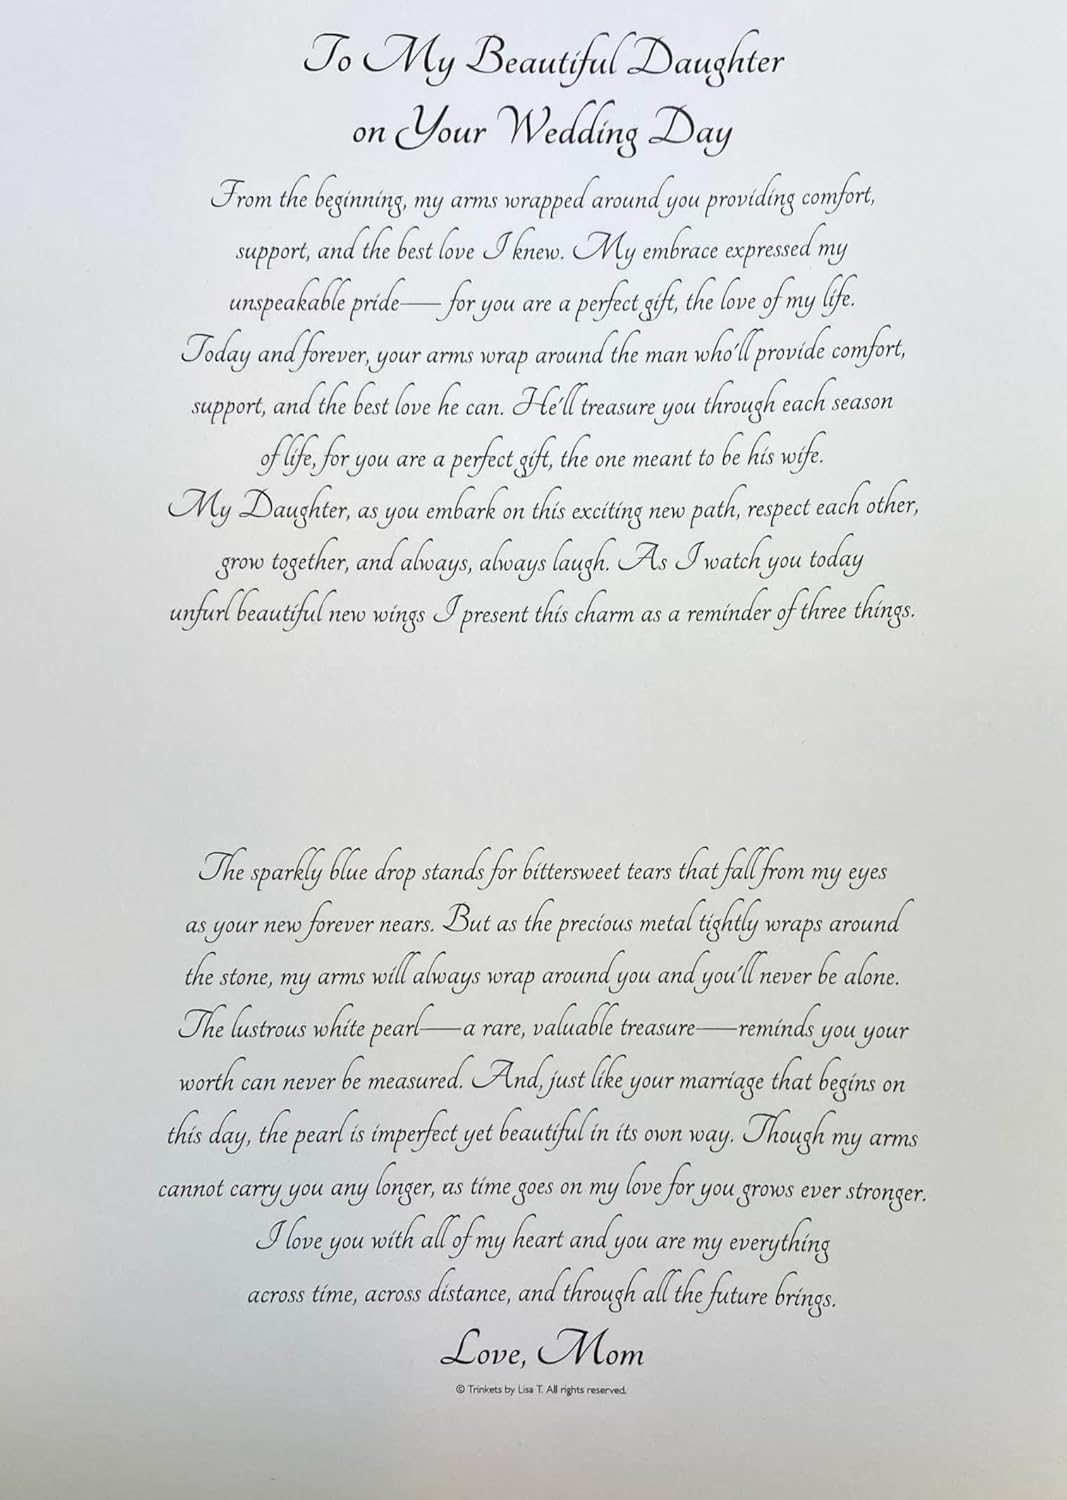 To My Beautiful Daughter
on Your Wedding Day
From the beginning, my arms wrapped around you providing comfort,
support, and the best love I knew. My embrace expressed my
unspeakable pride—for you are a perfect gift, the love of my life.
Today and forever, your arms wrap around the man who'll provide comfort,
support, and the best love he can. He'll treasure you through each season
of life, for you are a perfect gift, the one meant to be his wife.
My Daughter, as you embark on this exciting new path, respect each other,
grow together, and always, always laugh. As I watch you today
unfurl beautiful new wings I present this charm as a reminder of three things.
The sparkly blue drop stands for bittersweet tears that fall from my eyes
as your new forever nears. But as the precious metal tightly wraps around
the stone, my arms will always wrap around you and you'll never be alone.
The lustrous white pearl—a rare, valuable treasure—reminds you your
worth can never be measured. And, just like your marriage that begins on
this day, the pearl is imperfect yet beautiful in its own way. Though my arms
cannot carry you any longer, as time goes on my love for you grows ever stronger.
I love you with all of my heart and you are my everything
across time, across distance, and through all the future brings.
Love, Mom
© Trinkets by Lisa T. All rights reserved.